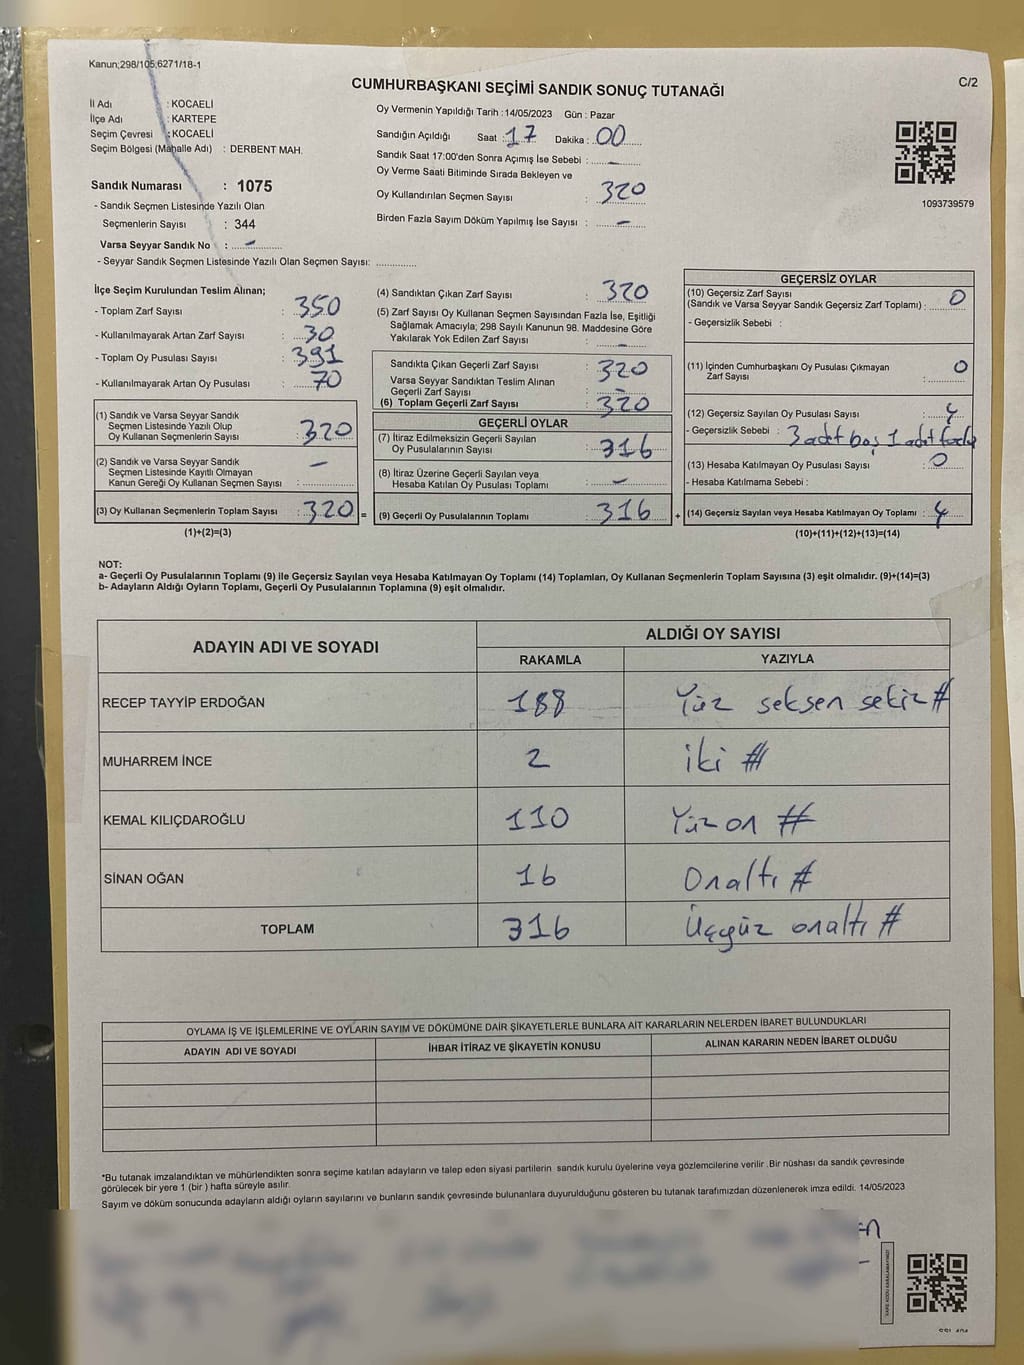 Kanun;298/105;6271/18-1
CUMHURBAŞKANI SEÇİMİ SANDIK SONUÇ TUTANAĞI
C/2
İl Adı : KOCAELİ
İlçe Adı : KARTEPE
Seçim Çevresi : KOCAELİ
Seçim Bölgesi (Mahalle Adı) : DERBENT MAH.
Sandık Numarası : 1075
- Sandık Seçmen Listesinde Yazılı Olan
Seçmenlerin Sayısı : 344
Varsa Seyyar Sandık No : -
- Seyyar Sandık Seçmen Listesinde Yazılı Olan Seçmen Sayısı:
Oy Vermenin Yapıldığı Tarih : 14/05/2023 Gün : Pazar
Sandığın Açıldığı Saat : 17 Dakika : 00
Sandık Saat 17:00'den Sonra Açımış İse Sebebi : -
Oy Verme Saati Bitiminde Sırada Bekleyen ve
Oy Kullandırılan Seçmen Sayısı : 320
Birden Fazla Sayım Döküm Yapılmış İse Sayısı : -
1093739579
İlçe Seçim Kurulundan Teslim Alınan;
- Toplam Zarf Sayısı : 350
- Kullanılmayarak Artan Zarf Sayısı : 30
- Toplam Oy Pusulası Sayısı : 391
- Kullanılmayarak Artan Oy Pusulası : 70
(1) Sandık ve Varsa Seyyar Sandık
Seçmen Listesinde Yazılı Olup
Oy Kullanan Seçmenlerin Sayısı : 320
(2) Sandık ve Varsa Seyyar Sandık
Seçmen Listesinde Kayıtlı Olmayan
Kanun Gereği Oy Kullanan Seçmen Sayısı : -
(3) Oy Kullanan Seçmenlerin Toplam Sayısı : 320 =
(1)+(2)=(3)
(4) Sandıktan Çıkan Zarf Sayısı : 320
(5) Zarf Sayısı Oy Kullanan Seçmen Sayısından Fazla İse, Eşitliği
Sağlamak Amacıyla; 298 Sayılı Kanunun 98. Maddesine Göre
Yakılarak Yok Edilen Zarf Sayısı : -
Sandıkta Çıkan Geçerli Zarf Sayısı : 320
Varsa Seyyar Sandıktan Teslim Alınan
Geçerli Zarf Sayısı : -
(6) Toplam Geçerli Zarf Sayısı : 320
GEÇERLİ OYLAR
(7) İtiraz Edilmeksizin Geçerli Sayılan
Oy Pusulalarının Sayısı : 316
(8) İtiraz Üzerine Geçerli Sayılan veya
Hesaba Katılan Oy Pusulası Toplamı : -
(9) Geçerli Oy Pusulalarının Toplamı : 316 +
GEÇERSİZ OYLAR
(10) Geçersiz Zarf Sayısı
(Sandık ve Varsa Seyyar Sandık Geçersiz Zarf Toplamı) : 0
- Geçersizlik Sebebi :
(11) İçinden Cumhurbaşkanı Oy Pusulası Çıkmayan
Zarf Sayısı : 0
(12) Geçersiz Sayılan Oy Pusulası Sayısı : 4
- Geçersizlik Sebebi : 3 adet boş 1 adet fazla
(13) Hesaba Katılmayan Oy Pusulası Sayısı : 0
- Hesaba Katılmama Sebebi :
(14) Geçersiz Sayılan veya Hesaba Katılmayan Oy Toplamı : 4
(10)+(11)+(12)+(13)=(14)
NOT:
a- Geçerli Oy Pusulalarının Toplamı (9) ile Geçersiz Sayılan veya Hesaba Katılmayan Oy Toplamı (14) Toplamları, Oy Kullanan Seçmenlerin Toplam Sayısına (3) eşit olmalıdır. (9)+(14)=(3)
b- Adayların Aldığı Oyların Toplamı, Geçerli Oy Pusulalarının Toplamına (9) eşit olmalıdır.
ADAYIN ADI VE SOYADI ALDIĞI OY SAYISI
RAKAMLA YAZIYLA
RECEP TAYYİP ERDOĞAN 188 Yüz seksen sekiz #
MUHARREM İNCE 2 iki #
KEMAL KILIÇDAROĞLU 110 Yüz on #
SİNAN OĞAN 16 Onaltı #
TOPLAM 316 Üçyüz onaltı #
OYLAMA İŞ VE İŞLEMLERİNE VE OYLARIN SAYIM VE DÖKÜMÜNE DAİR ŞİKAYETLERLE BUNLARA AİT KARARLARIN NELERDEN İBARET BULUNDUKLARI
ADAYIN ADI VE SOYADI İHBAR İTİRAZ VE ŞİKAYETİN KONUSU ALINAN KARARIN NEDEN İBARET OLDUĞU
*Bu tutanak imzalandıktan ve mühürlendikten sonra seçime katılan adayların ve talep eden siyasi partilerin sandık kurulu üyelerine veya gözlemcilerine verilir .Bir nüshası da sandık çevresinde
görülecek bir yere 1 (bir ) hafta süreyle asılır.
Sayım ve döküm sonucunda adayların aldığı oyların sayılarını ve bunların sandık çevresinde bulunanlara duyurulduğunu gösteren bu tutanak tarafımızdan düzenlenerek imza edildi. 14/05/2023
KARE KODU KARALAMAYINIZ!